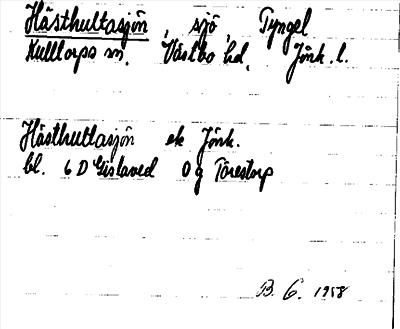 Hästhultasjön , sjö , Tyngel
Kulltorps sn. Västbo hd. Jönk. l.
Hästhultasjön ek Jönk.
bl. 6 D Gislaved 0 g Törestorp
B. G. 1958